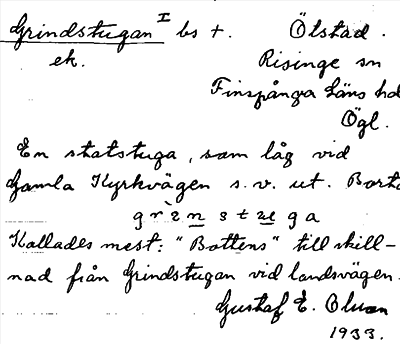 Grindstugan I bs †. Ölstad.
ek. Risinge sn
Finspånga läns hd
Ögl.
En statstuga, som låg vid
Gamla Kyrkvägen s.v. ut. Borta
grìnstuga
Kallades mest: "Bottens" till skill-
nad från Grindstugan vid landsvägen.
Gustaf E. Olsson
1933.